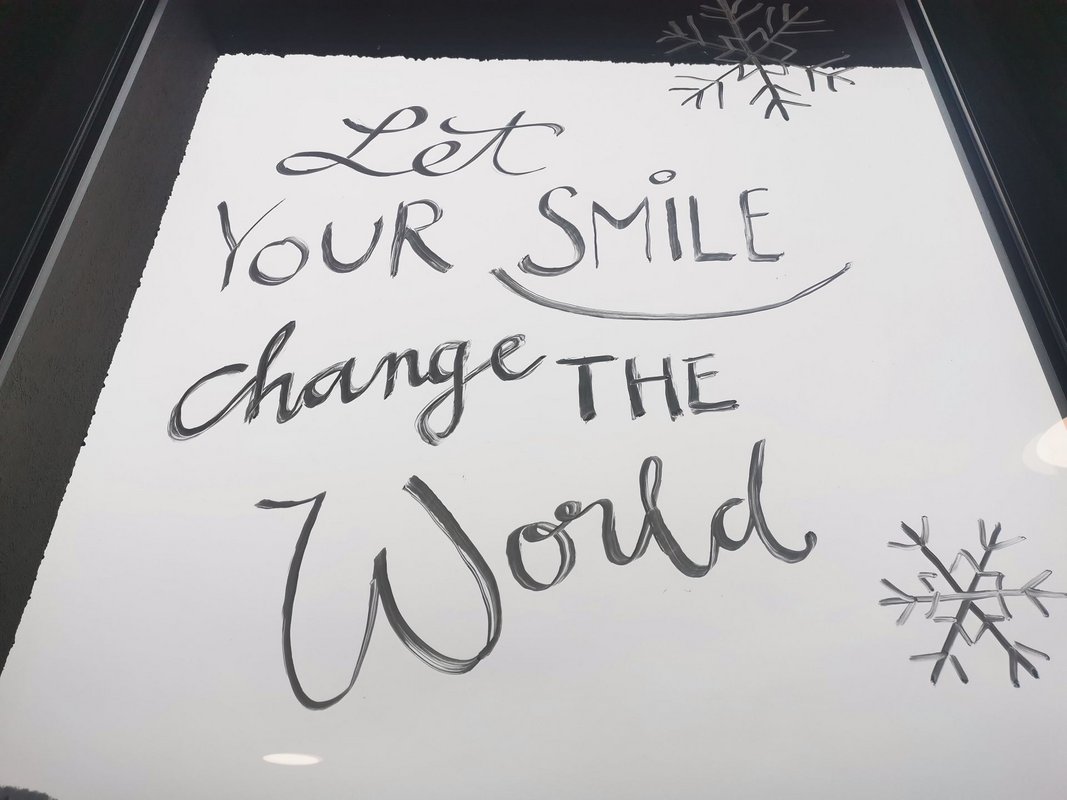 Let
YOUR SMiLE
change THE
World